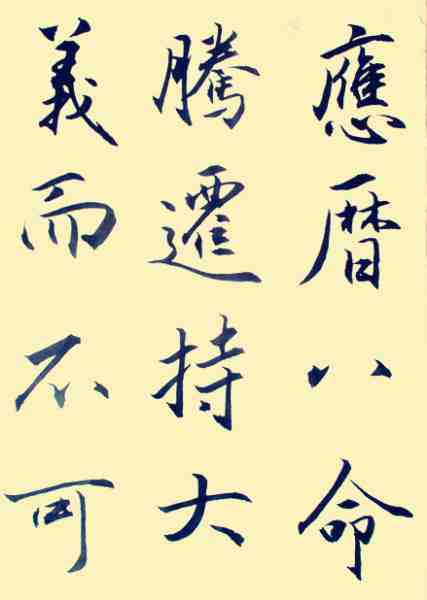 應暦八命
騰遷持大
義而不可